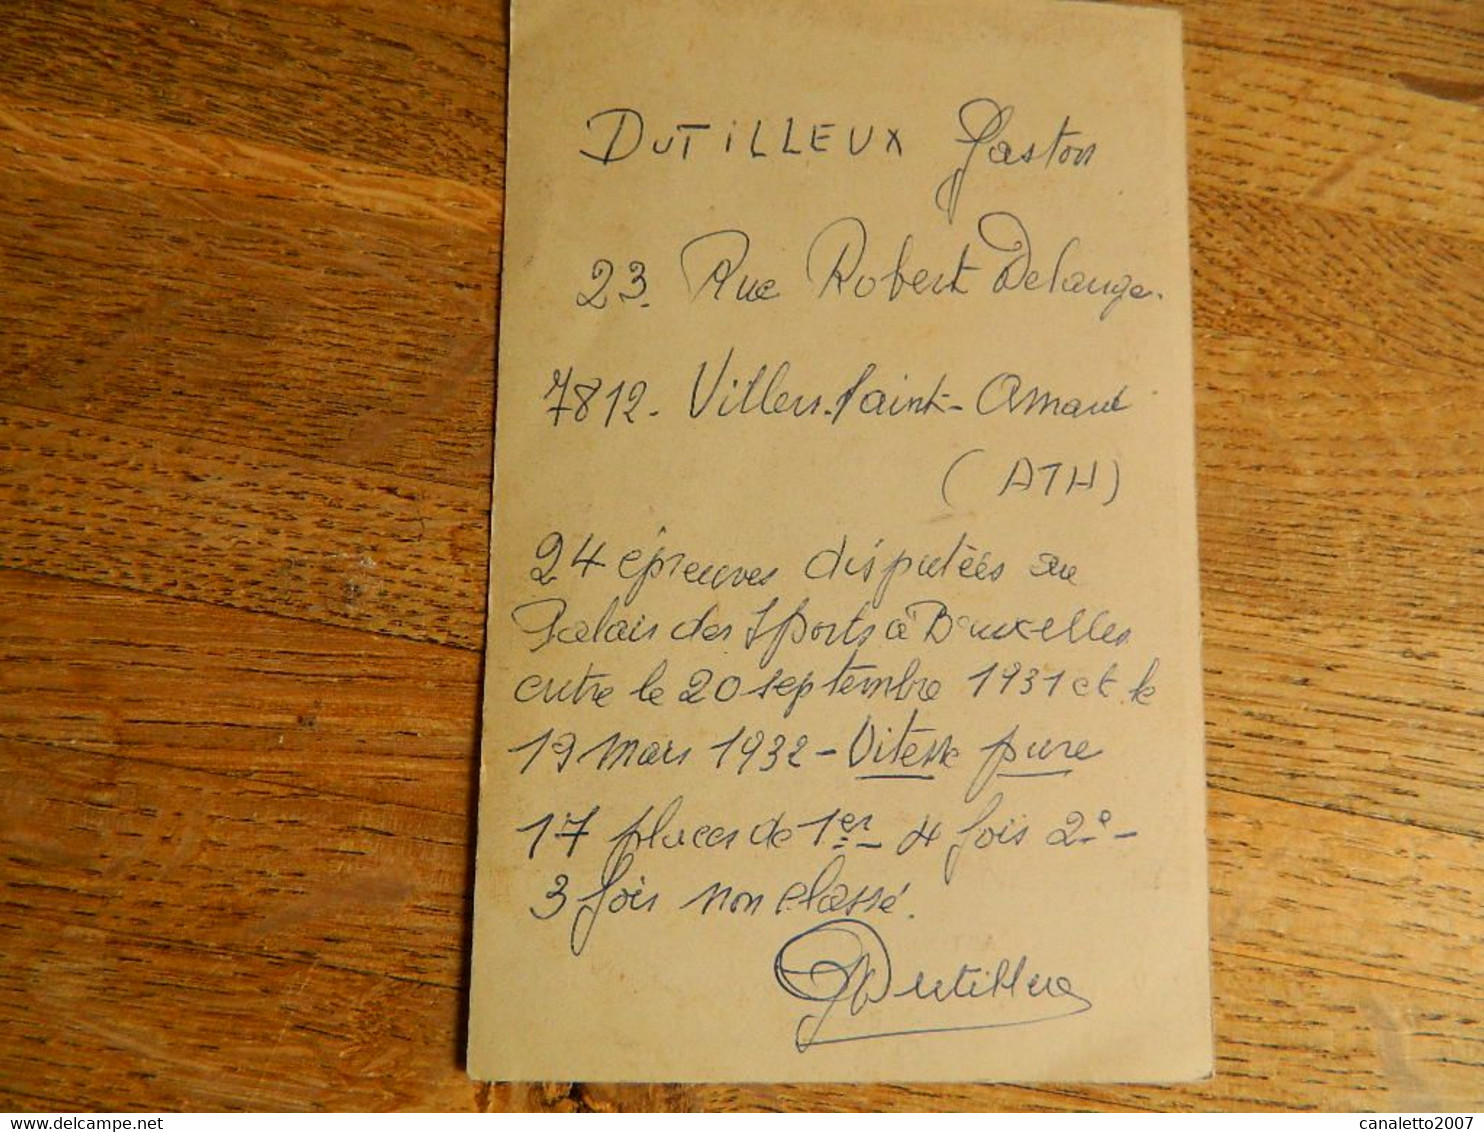 DUTILLEUX Gaston
23. Rue Robert Delange.
7812. Villers-Saint-Amand
(ATH)
24 épreuves disputées au
Palais des Sports à Bruxelles
entre le 20 septembre 1931 et le
19 mars 1932 - Vitesse pure
17 places de 1er - 4 fois 2e -
3 fois non classé.
GDutilleux
delcampe.net
canaletto2007